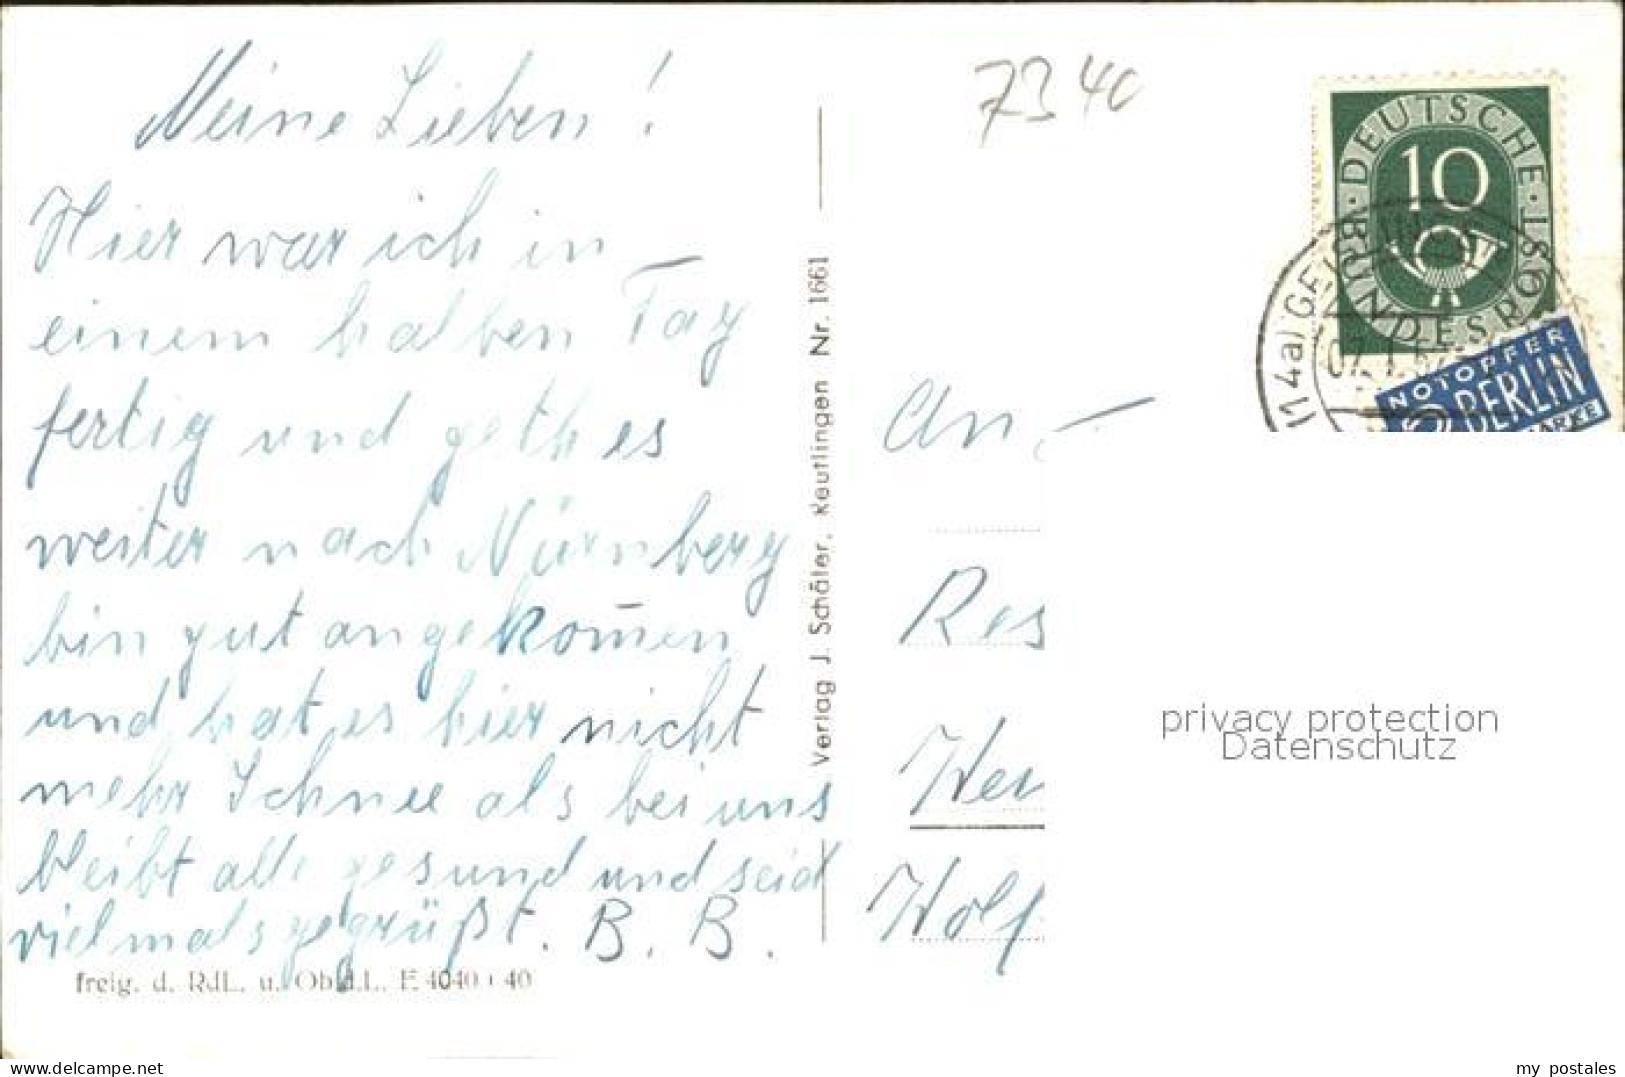 Meine Lieben!
Hier war ich in
einem halben Tag
fertig und geth es
weiter nach Nürnberg
bin gut angekom̅en
und hat es hier nicht
mehr Schnee als bei uns
bleibt alle gesund und seid
vielmals gegrüßt. B. B.
freig. d. RdL. u. Ob.d.L. E 4040 / 40
Verlag J. Schäfer, Reutlingen Nr. 1661
7340
DEUTSCHE
BUNDESPOST
10
(14a) GEI
NOTOPFER
2 BERLIN
An
Res
Wolf
privacy protection
Datenschutz
picclick.de
my_postales